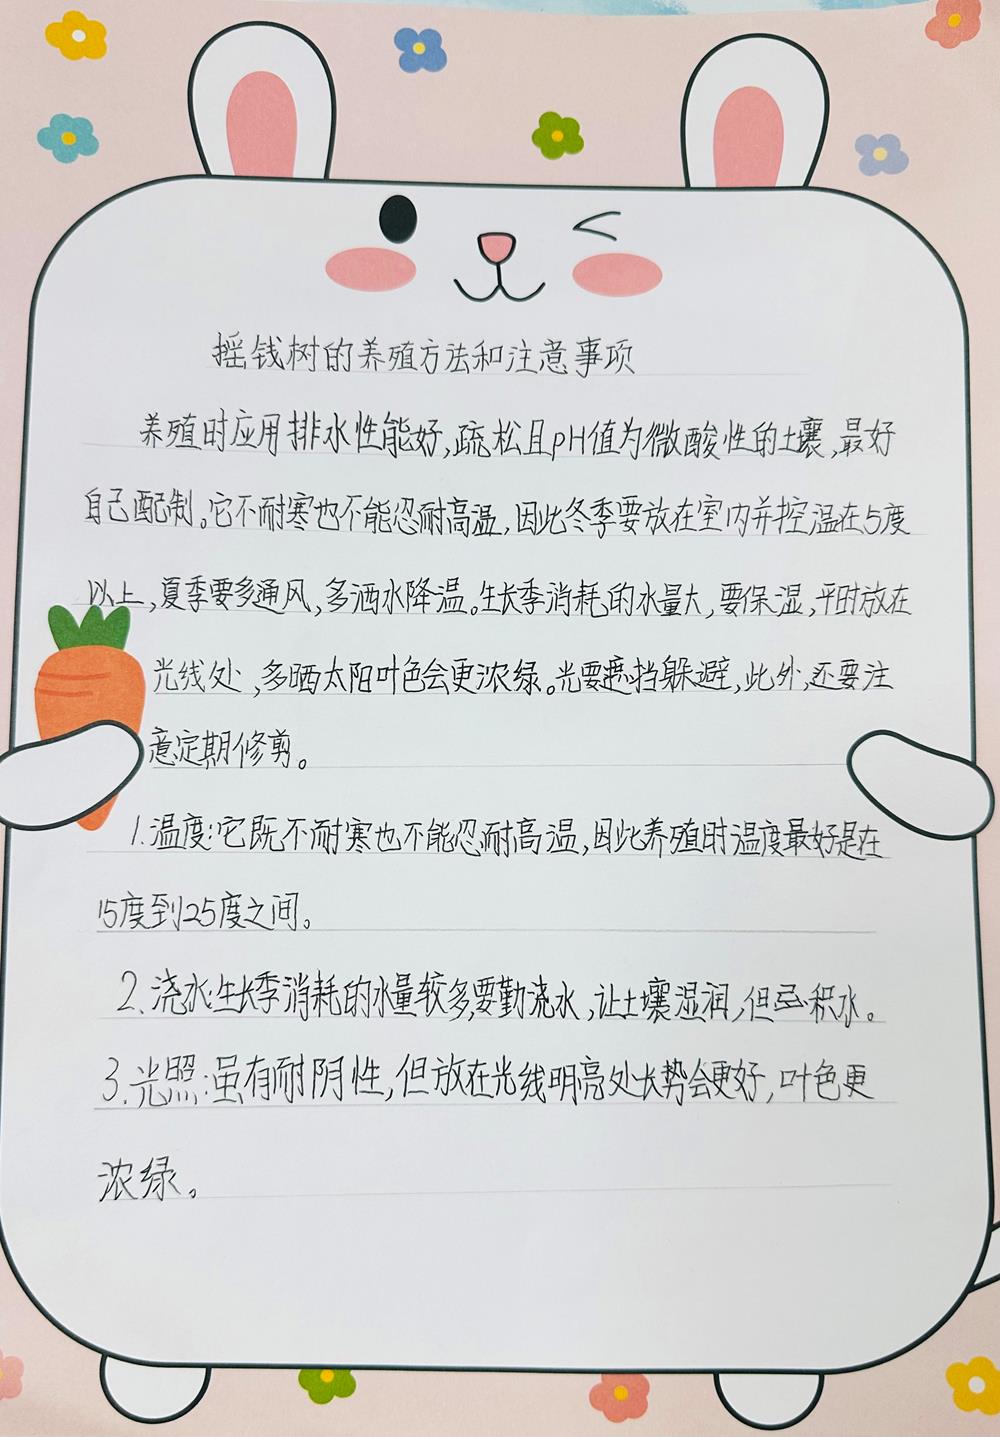 摇钱树的养殖方法和注意事项
养殖时应用排水性能好,疏松且pH值为微酸性的土壤,最好
自己配制。它不耐寒也不能忍耐高温,因此冬季要放在室内并控温在5度
以上,夏季要多通风,多洒水降温。生长季消耗的水量大,要保湿,平时放在
光线处,多晒太阳叶色会更浓绿。光要遮挡躲避,此外,还要注
意定期修剪。
1.温度:它既不耐寒也不能忍耐高温,因此养殖时温度最好是在
15度到25度之间。
2、浇水:生长季消耗的水量较多,要勤浇水,让土壤湿润,但忌积水。
3.光照:虽有耐阴性,但放在光线明亮处长势会更好,叶色更
浓绿。